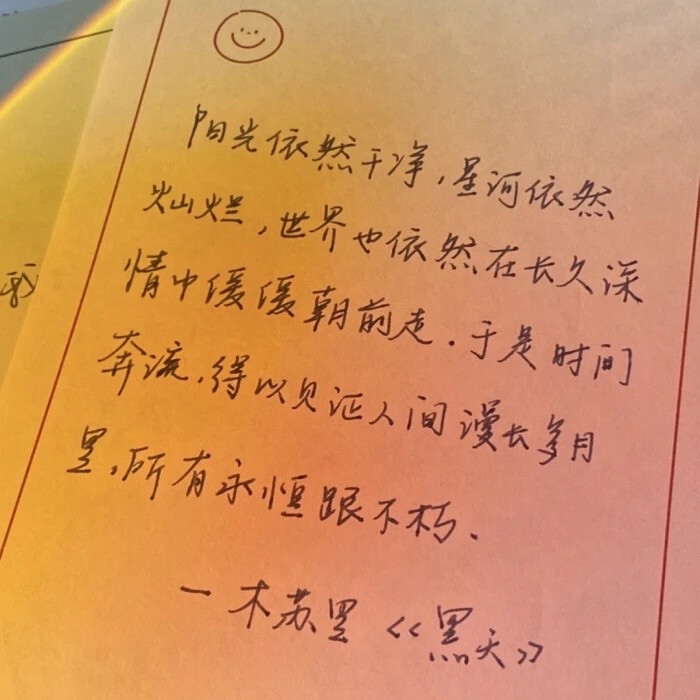 阳光依然干净,星河依然
灿烂,世界也依然在长久深
情中缓缓朝前走.于是时间
奔流,得以见证人间漫长岁月
里,所有永恒跟不朽.
一木苏里《黑天》
我